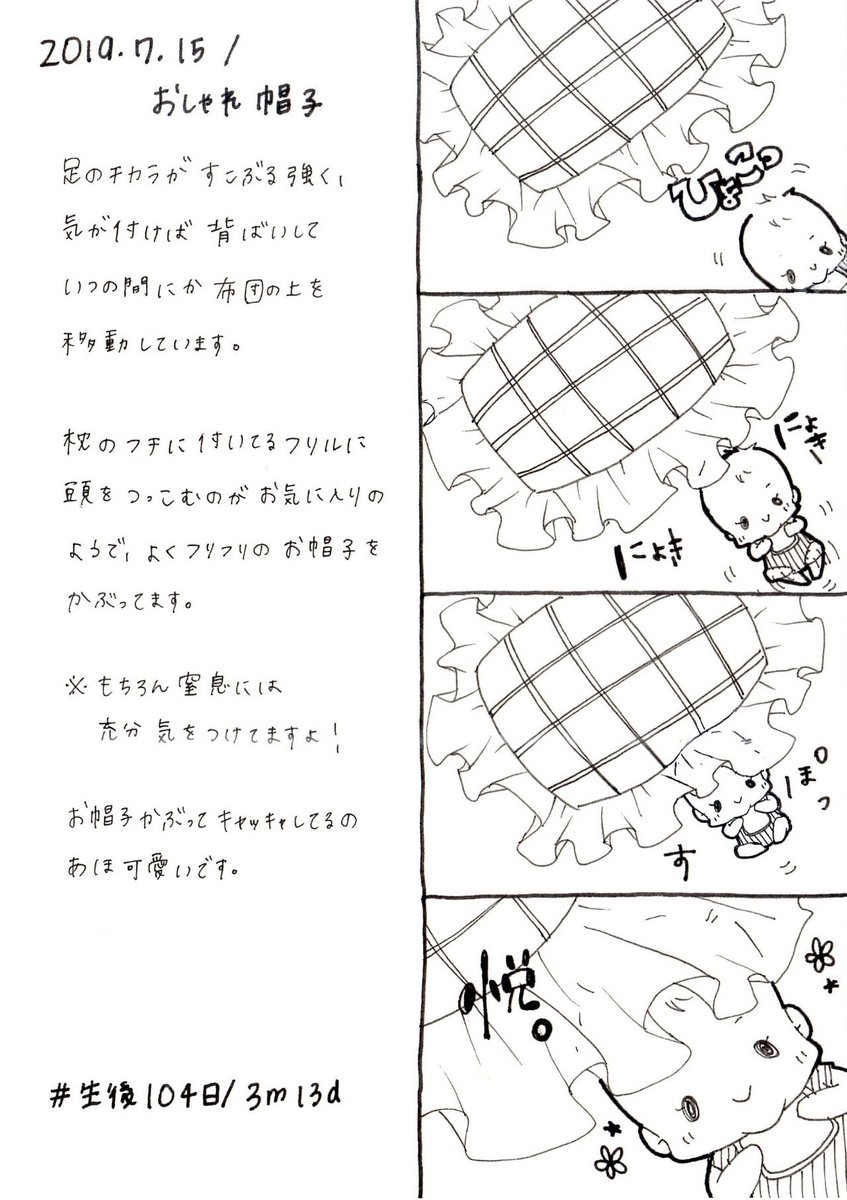 2019.7.15/
おしゃれ帽子
足のチカラが すこぶる強く、
気が付けば 背ばいして
いつの間にか 布団の上を
移動しています。
枕のフチに付いてるフリルに
頭を つっこむのが お気に入りの
ようで、よくフリフリの お帽子を
かぶってます。
※もちろん 窒息には
充分 気をつけてますよ!
お帽子かぶって キャッキャしてるの
あほ可愛いです。
#生後104日/3m13d
ひょこっ
にょき
にょき
すぽっ
悦。